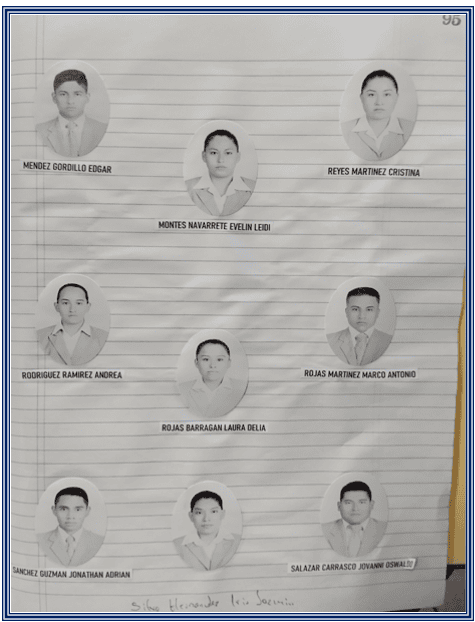 95
MENDEZ GORDILLO EDGAR
REYES MARTINEZ CRISTINA
MONTES NAVARRETE EVELIN LEIDI
RODRIGUEZ RAMIREZ ANDREA
ROJAS MARTINEZ MARCO ANTONIO
ROJAS BARRAGAN LAURA DELIA
SANCHEZ GUZMAN JONATHAN ADRIAN
SALAZAR CARRASCO JOVANNI OSWALDO
Hernandez